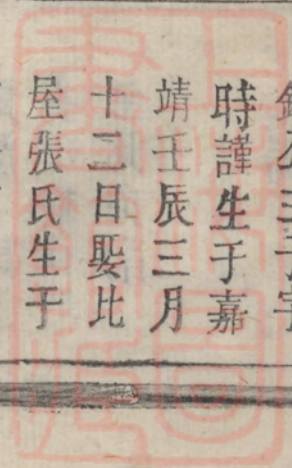 三子字
時謹生于嘉
靖壬辰三月
十二日娶比
屋張氏生于